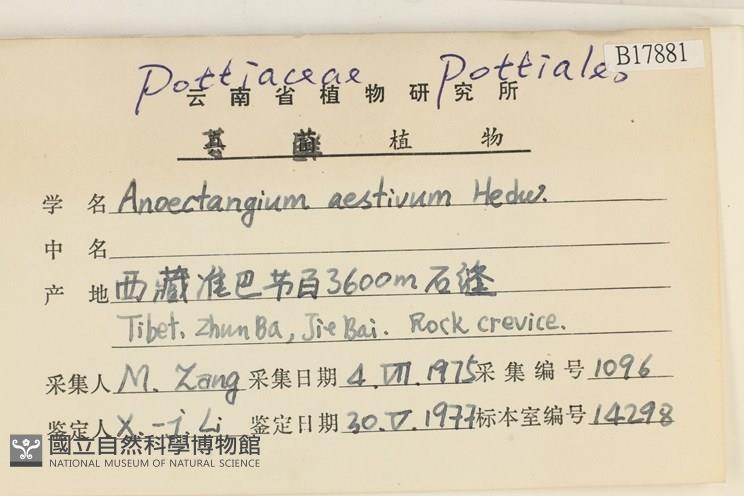 B17881
Pottiaceae Pottiales
云南省植物研究所
植物
学名 Anoectangium aestivum Hedw.
中名
产地 西藏准巴节百3600m石缝
Tibet. Zhun Ba, Jie Bai. Rock crevice.
采集人 M. Zang 采集日期 4.VII.1975 采集编号 1096
鉴定人 X.-j. Li 鉴定日期 30.V.1977 标本室编号 14298
國立自然科學博物館
NATIONAL MUSEUM OF NATURAL SCIENCE